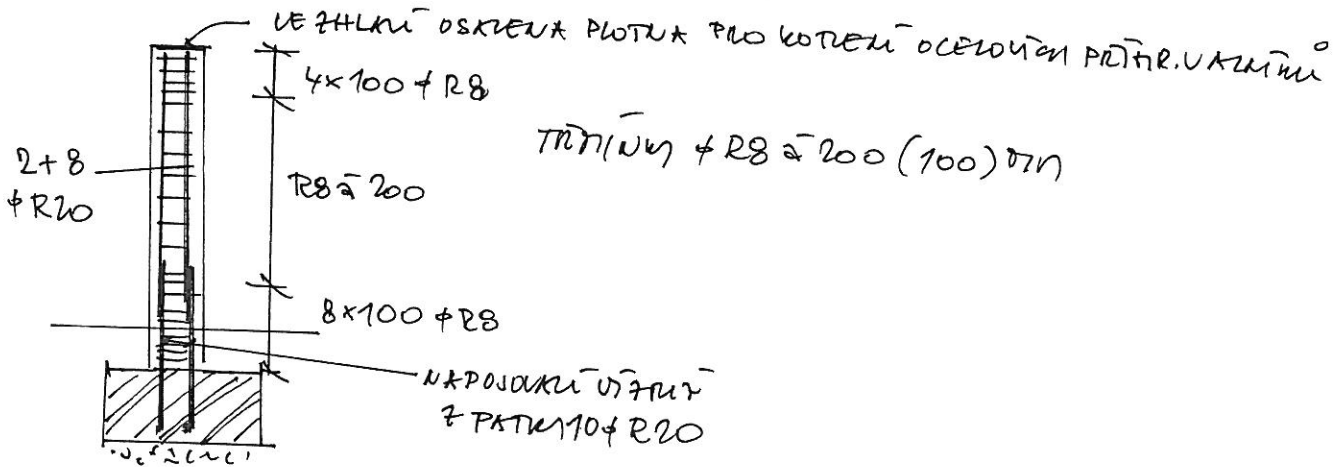 VE ZHLAVÍ OSAZENA PLOTNA PRO KOTVENÍ OCELOVÝCH PŘÍHR. VAZNÍKŮ
4×100 ϕR8
TŘMÍNKY ϕR8 á 200 (100) mm
2+8
ϕR20
R8 á 200
8×100 ϕR8
NAPOJOVACÍ VÝZTUŽ
Z PATKY 10ϕR20